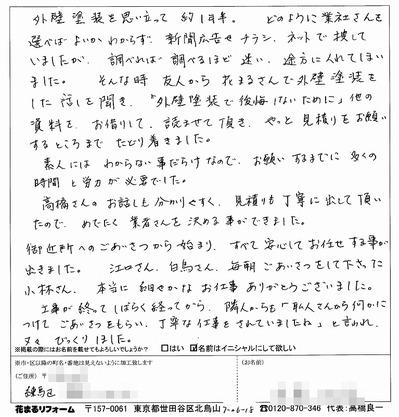 外壁塗装を思い立って 約1年半。 どのように業社さんを
選べばよいかわからず、新聞広告やチラシ、ネットで捜して
いましたが、調べれば調べるほど迷い、途方に入れてしまい
ました。 そんな時 友人から 花まるさんで外壁塗装を
した話しを聞き、「外壁塗装で後悔しないために」他の
資料を、お借りして、読ませて頂き、やっと見積りをお願い
するところまで たどり着きました。
素人には わからない事だらけなので、お願いするまでに 多くの
時間と労力が必要でした。
高橋さんのお話しも分かりやすく、見積りも丁寧に出して頂い
たので、めでたく 業者さんを決める事ができました。
御近所へのごあいさつから始まり、すべて安心してお任せする事が
出きました。 江口さん、白鳥さん、毎朝ごあいさつをして下さった
小林さん、本当に細やかなお仕事ありがとうございました。
工事が終ってしばらく経ってから、隣人からも「職人さんから何かに
つけてごあいさつをもらい、丁寧な仕事をされていましたね」と言われ、
びっくりしました。
※掲載の際にはお名前を載せてもよろしいでしょうか? □はい ☑名前はイニシャルにして欲しい
※市・区以降の町名・番地は見えないように加工致します
(ご住所) 〒 (お名前)
練馬区
花まるリフォーム 〒157-0061 東京都世田谷区北烏山7-26-18 ☎0120-870-346 代表:高橋良一